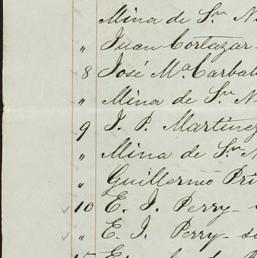 Mina de Sn N
" Juan Cortazar
8 José Ma. Carbal
" Mina de Sn N
9 J. P. Martinez
" Mina de Sn N
" Guillermo Pri
10 E. J. Perry - s
" E. J. Perry - s
15